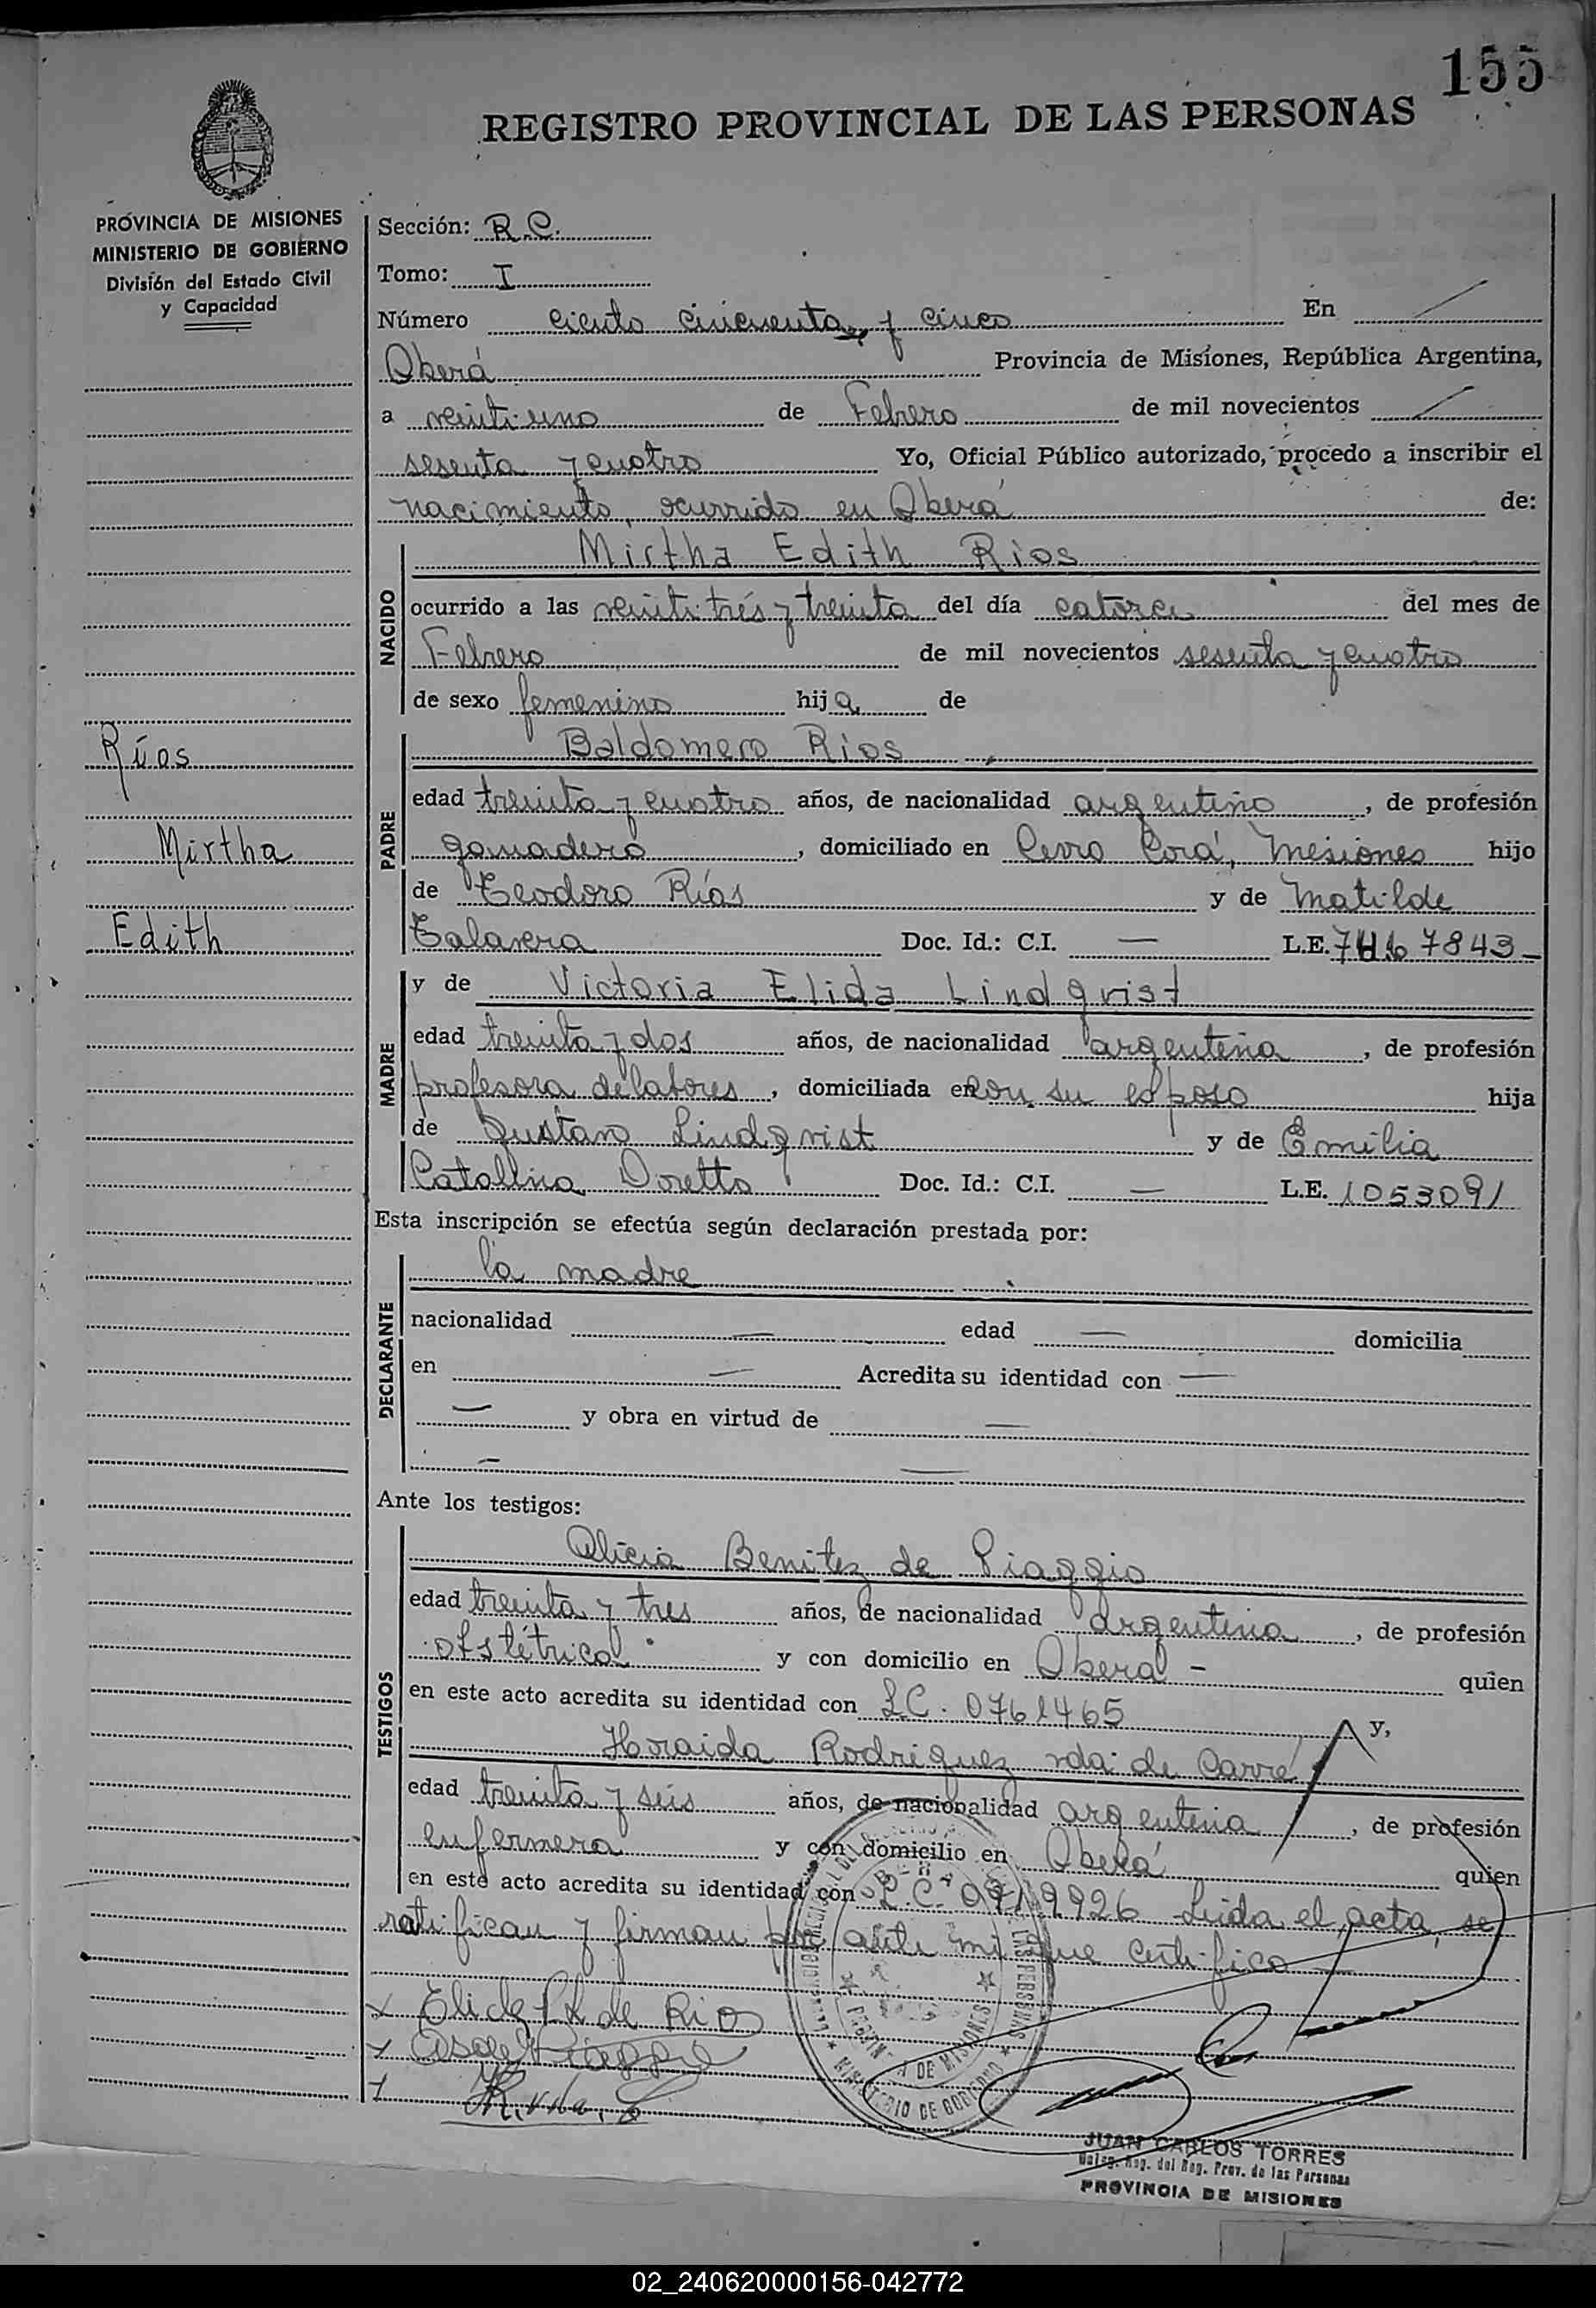 155
REGISTRO PROVINCIAL DE LAS PERSONAS
PROVINCIA DE MISIONES
MINISTERIO DE GOBIERNO
División del Estado Civil
y Capacidad
Sección: R.C.
Tomo: I
Número ciento cincuenta y cinco En
Oberá Provincia de Misiones, República Argentina,
a veintiuno de Febrero de mil novecientos
sesenta y cuatro Yo, Oficial Público autorizado, procedo a inscribir el
nacimiento, ocurrido en Oberá de:
NACIDO
Mirtha Edith Rios
ocurrido a las veintitrés y treinta del día catorce del mes de
Febrero de mil novecientos sesenta y cuatro
de sexo femenino hija de
Ríos
Mirtha
Edith
PADRE
Baldomero Rios
edad treinta y cuatro años, de nacionalidad argentino, de profesión
ganadero, domiciliado en Cerro Corá, Misiones hijo
de Teodoro Ríos y de Matilde
Talavera Doc. Id.: C.I. — L.E. 7467843-
MADRE
y de Victoria Elida Lindqvist
edad treinta y dos años, de nacionalidad argentina, de profesión
profesora de labores, domiciliada en con su esposo hija
de Gustavo Lindqvist y de Emilia
Catalina Doretto Doc. Id.: C.I. — L.E. 1053091
Esta inscripción se efectúa según declaración prestada por:
DECLARANTE
la madre
nacionalidad — edad — domicilia
en — Acredita su identidad con —
— y obra en virtud de —
— —
Ante los testigos:
TESTIGOS
Alicia Benitez de Piaggio
edad treinta y tres años, de nacionalidad argentina, de profesión
obstétrica y con domicilio en Oberá - quien
en este acto acredita su identidad con L.C. 0761465 y,
Horaida Rodriguez vda. de Carré
edad treinta y seis años, de nacionalidad argentina, de profesión
enfermera y con domicilio en Oberá quien
en este acto acredita su identidad con L.C. 0919926 Leida el acta, se
ratifican y firman por ante mi que certifico —
de Rios
MINISTERIO DE GOBIERNO
DE MISIONES
JUAN CARLOS TORRES
del Reg. Prov. de las Personas
PROVINCIA DE MISIONES
02_240620000156-042772